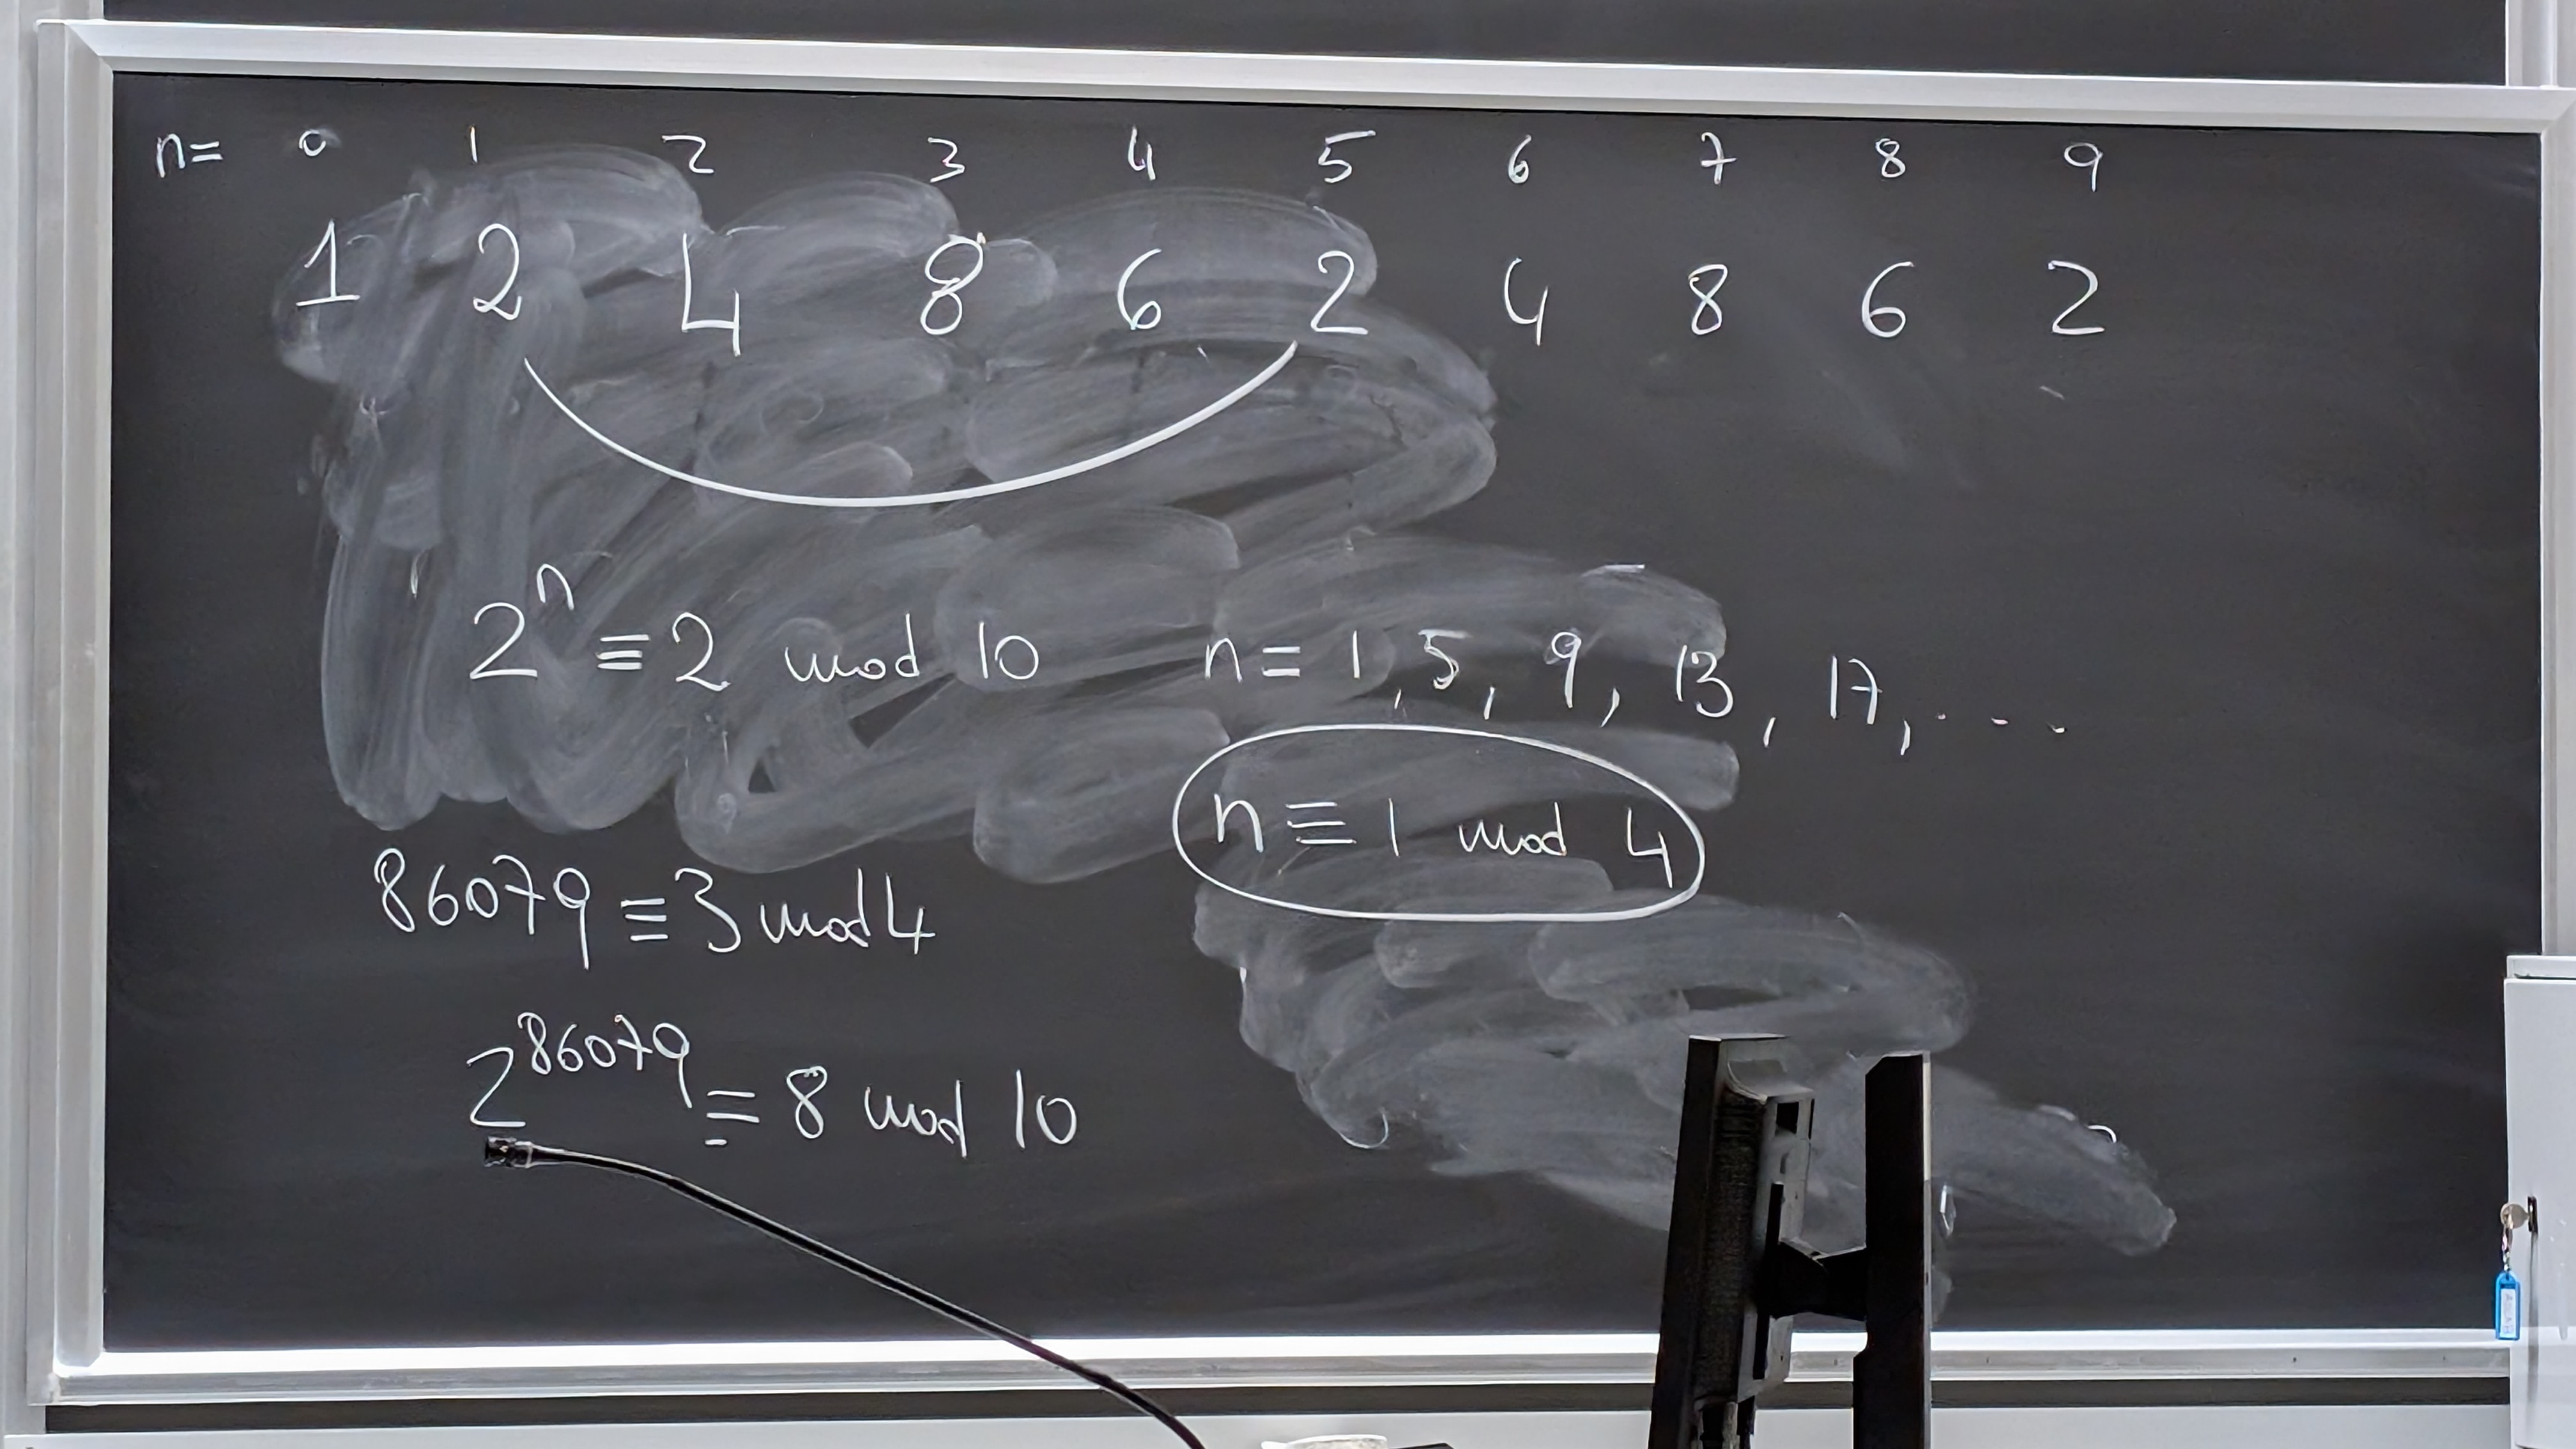 n= 0 1 2 3 4 5 6 7 8 9
1 2 4 8 6 2 4 8 6 2
2^n ≡ 2 mod 10 n ≡ 1, 5, 9, 13, 17, ....
n ≡ 1 mod 4
86079 ≡ 3 mod 4
2^86079 ≡ 8 mod 10